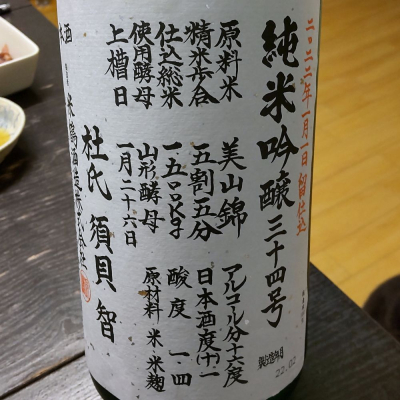 二〇二二年一月一日留仕込
純米吟醸三十四号
製造年月
22.02
原料米 美山錦 アルコール分十六度
精米歩合 五割五分 日本酒度(+)一
仕込総米 一五〇〇kg 酸度 一.四
使用酵母 山形酵母 原材料 米 米麹
上槽日 一月二十六日
杜氏 須貝 智
米鶴酒造株式会社
酒